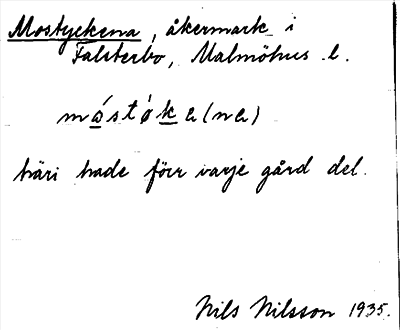 Mostyckena, åkermark i
Falsterbo, Malmöhus l.
möstøka(na)
häri hade förr varje gård del.
Nils Nilsson 1935.